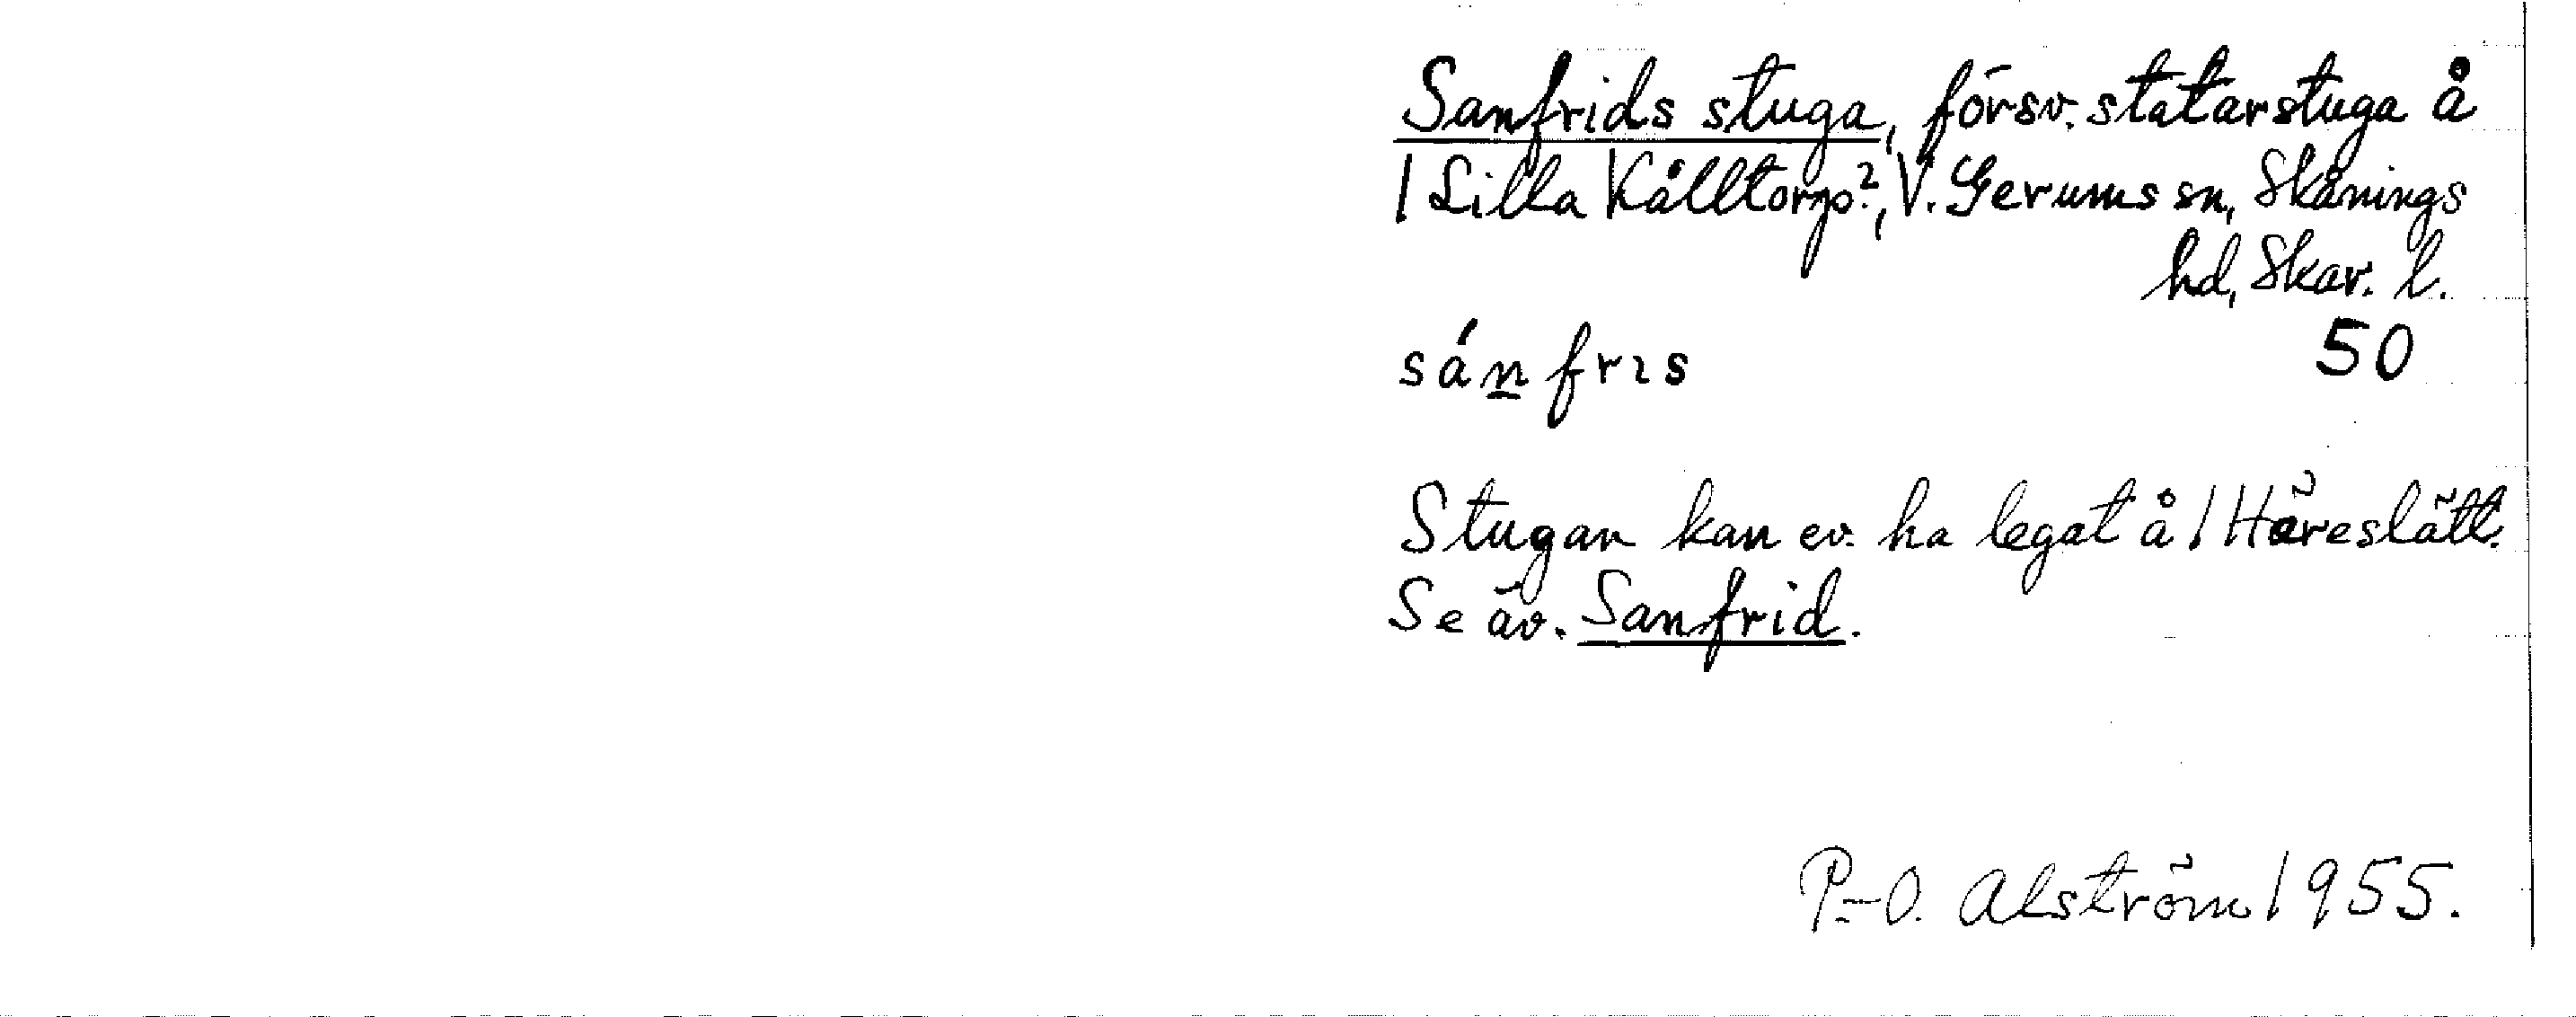 Sanfrids stuga, försv. statarstuga å
1 Lilla Kålltorp?, V. Gerums sn, Skånings
hd, Skar. l.
sánfrıs 50
Stugan kan ev. ha legat å 1 Häreslätt.
Se äv. Sanfrid.
P.-O. Alström 1955.